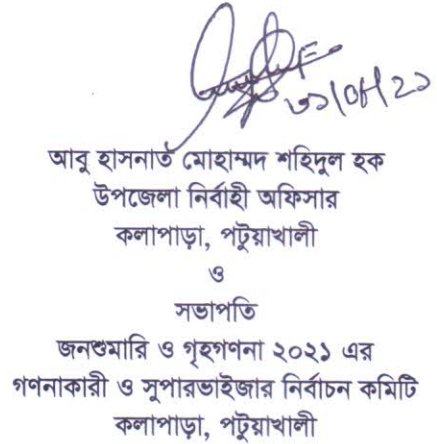 ৩১/০৮/২১
আবু হাসনাত মোহাম্মদ শহিদুল হক
উপজেলা নির্বাহী অফিসার
কলাপাড়া, পটুয়াখালী
ও
সভাপতি
জনশুমারি ও গৃহগণনা ২০২১ এর
গণনাকারী ও সুপারভাইজার নির্বাচন কমিটি
কলাপাড়া, পটুয়াখালী